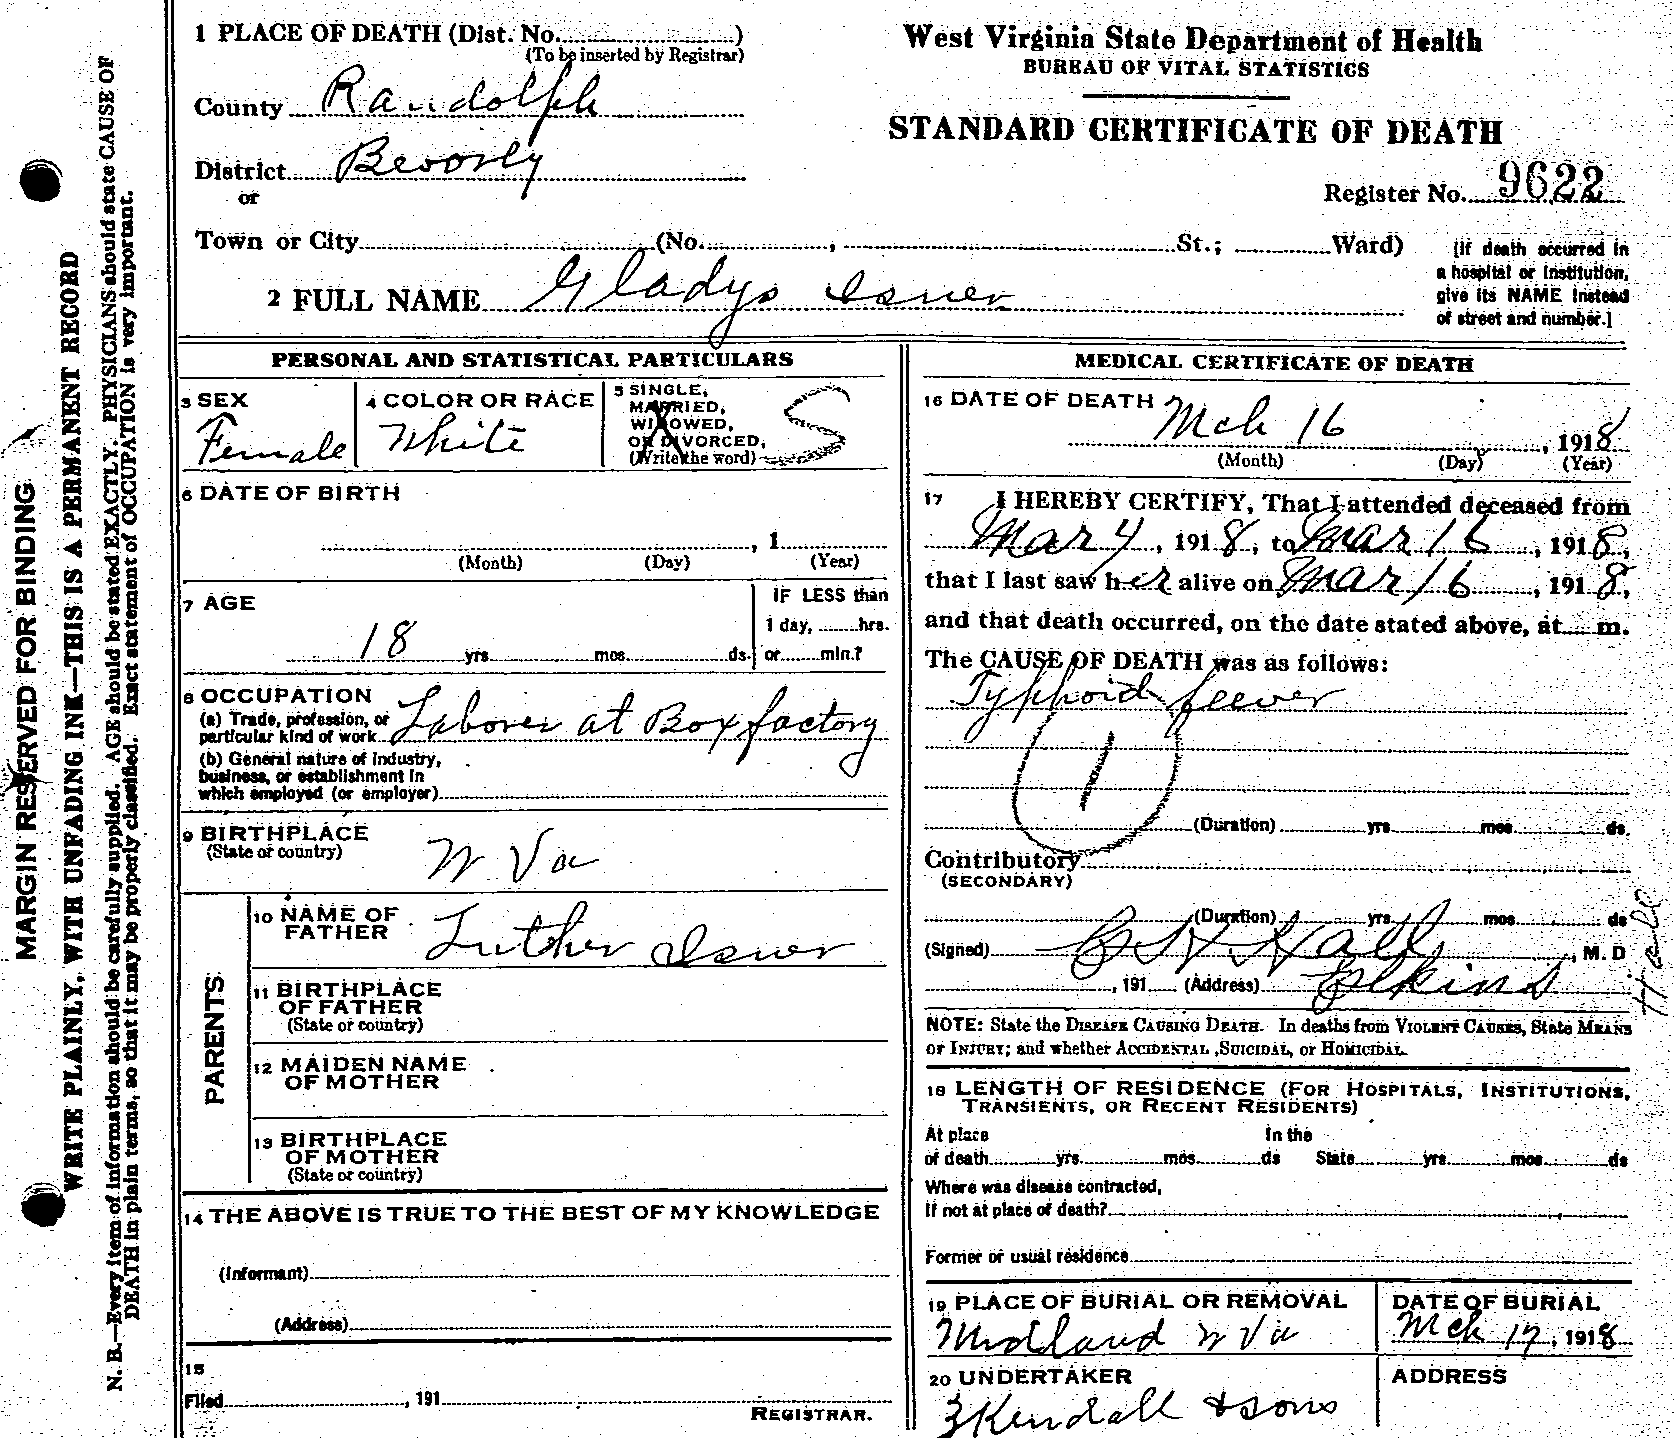 MARGIN RESERVED FOR BINDING
WRITE PLAINLY, WITH UNFADING INK—THIS IS A PERMANENT RECORD
N. B.—Every item of information should be carefully supplied. AGE should be stated EXACTLY. PHYSICIANS should state CAUSE OF
DEATH in plain terms, so that it may be properly classified. Exact statement of OCCUPATION is very important.
1 PLACE OF DEATH (Dist. No. )
(To be inserted by Registrar)
County Randolph
District Beverly
or
Town or City (No. , St.; Ward)
West Virginia State Department of Health
BUREAU OF VITAL STATISTICS
STANDARD CERTIFICATE OF DEATH
Register No. 9622
[If death occurred in
a hospital or institution,
give its NAME instead
of street and number.]
2 FULL NAME Gladys Isner
PERSONAL AND STATISTICAL PARTICULARS
3 SEX
Female
4 COLOR OR RACE
White
5 SINGLE,
MARRIED,
WIDOWED,
OR DIVORCED,
(Write the word)
S
6 DATE OF BIRTH
, 1
(Month) (Day) (Year)
7 AGE
18 yrs. mos. ds.
IF LESS than
1 day, hrs.
or min.?
8 OCCUPATION
(a) Trade, profession, or
particular kind of work Laborer at Box factory
(b) General nature of industry,
business, or establishment in
which employed (or employer)
9 BIRTHPLACE
(State or country)
W Va
PARENTS
10 NAME OF
FATHER
Luther Isner
11 BIRTHPLACE
OF FATHER
(State or country)
12 MAIDEN NAME
OF MOTHER
13 BIRTHPLACE
OF MOTHER
(State or country)
14 THE ABOVE IS TRUE TO THE BEST OF MY KNOWLEDGE
(Informant)
(Address)
15
Filed , 191
REGISTRAR.
MEDICAL CERTIFICATE OF DEATH
16 DATE OF DEATH
Mch 16 , 1918
(Month) (Day) (Year)
17 I HEREBY CERTIFY, That I attended deceased from
Mar 4, 1918, to Mar 16, 1918,
that I last saw her alive on Mar 16, 1918,
and that death occurred, on the date stated above, at m.
The CAUSE OF DEATH was as follows:
Typhoid feever
1
(Duration) yrs. mos. ds.
Contributory
(SECONDARY)
(Duration) yrs. mos. ds
(Signed) C H Hall, M. D
, 191 (Address) Elkins
Hall
NOTE: State the DISEASE CAUSING DEATH. In deaths from VIOLENT CAUSES, State MEANS
OF INJURY; and whether ACCIDENTAL, SUICIDAL, or HOMICIDAL.
18 LENGTH OF RESIDENCE (FOR HOSPITALS, INSTITUTIONS,
TRANSIENTS, OR RECENT RESIDENTS)
At place In the
of death yrs. mos. ds State yrs. mos. ds
Where was disease contracted,
If not at place of death?
Former or usual residence
19 PLACE OF BURIAL OR REMOVAL
Midland W Va
DATE OF BURIAL
Mch 17, 1918
20 UNDERTAKER
Kendall & sons
ADDRESS